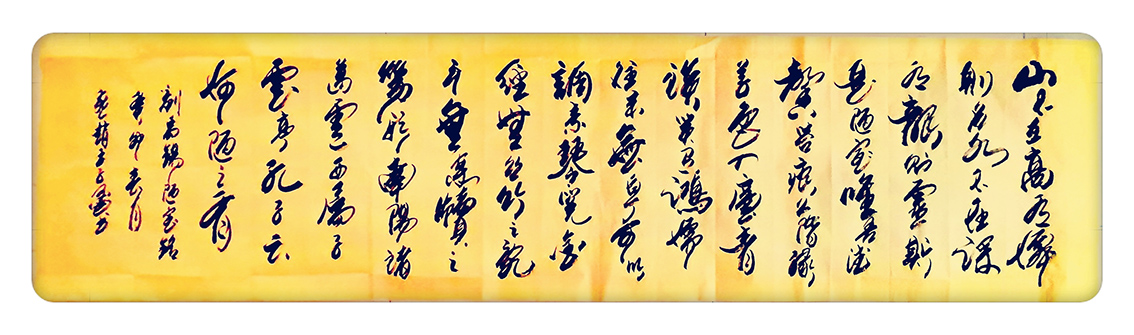 山不在高有僊
則名水不在深
有龍則靈斯
是陋室唯吾德
馨苔痕上階綠
草色入簾青
談笑有鴻儒
往來無白丁可以
調素琴閱金
經無絲竹之亂
耳無案牘之
勞形南陽諸
葛廬西蜀子
雲亭孔子云
何陋之有
劉禹錫陋室銘
辛卯春月